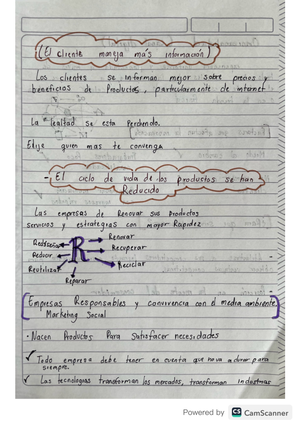 (El cliente maneja más información)
Los clientes se informan mejor sobre precios y
beneficios de Productos, particularmente de internet
La "lealtad se esta Perdendo.
Elije quien mas te convenga
- El ciclo de vida de los productos se han
Reducido
Las empresas de Renovar sus Productos
servicios y estrategias con mayor Rapidez
Renovar
Recuperar
Reciclar
Reparar
Reutilizar
Reducir
R
[Empresas Responsables y convivencia con el medio ambiente]
Marketing Social
- Nacen Productos Para Satisfacer necesidades
✓ Toda empresa debe tener en cuenta que no va a durar para
siempre.
✓ Las tecnologias transforman los mercados, transforman industrias
Powered by CS CamScanner